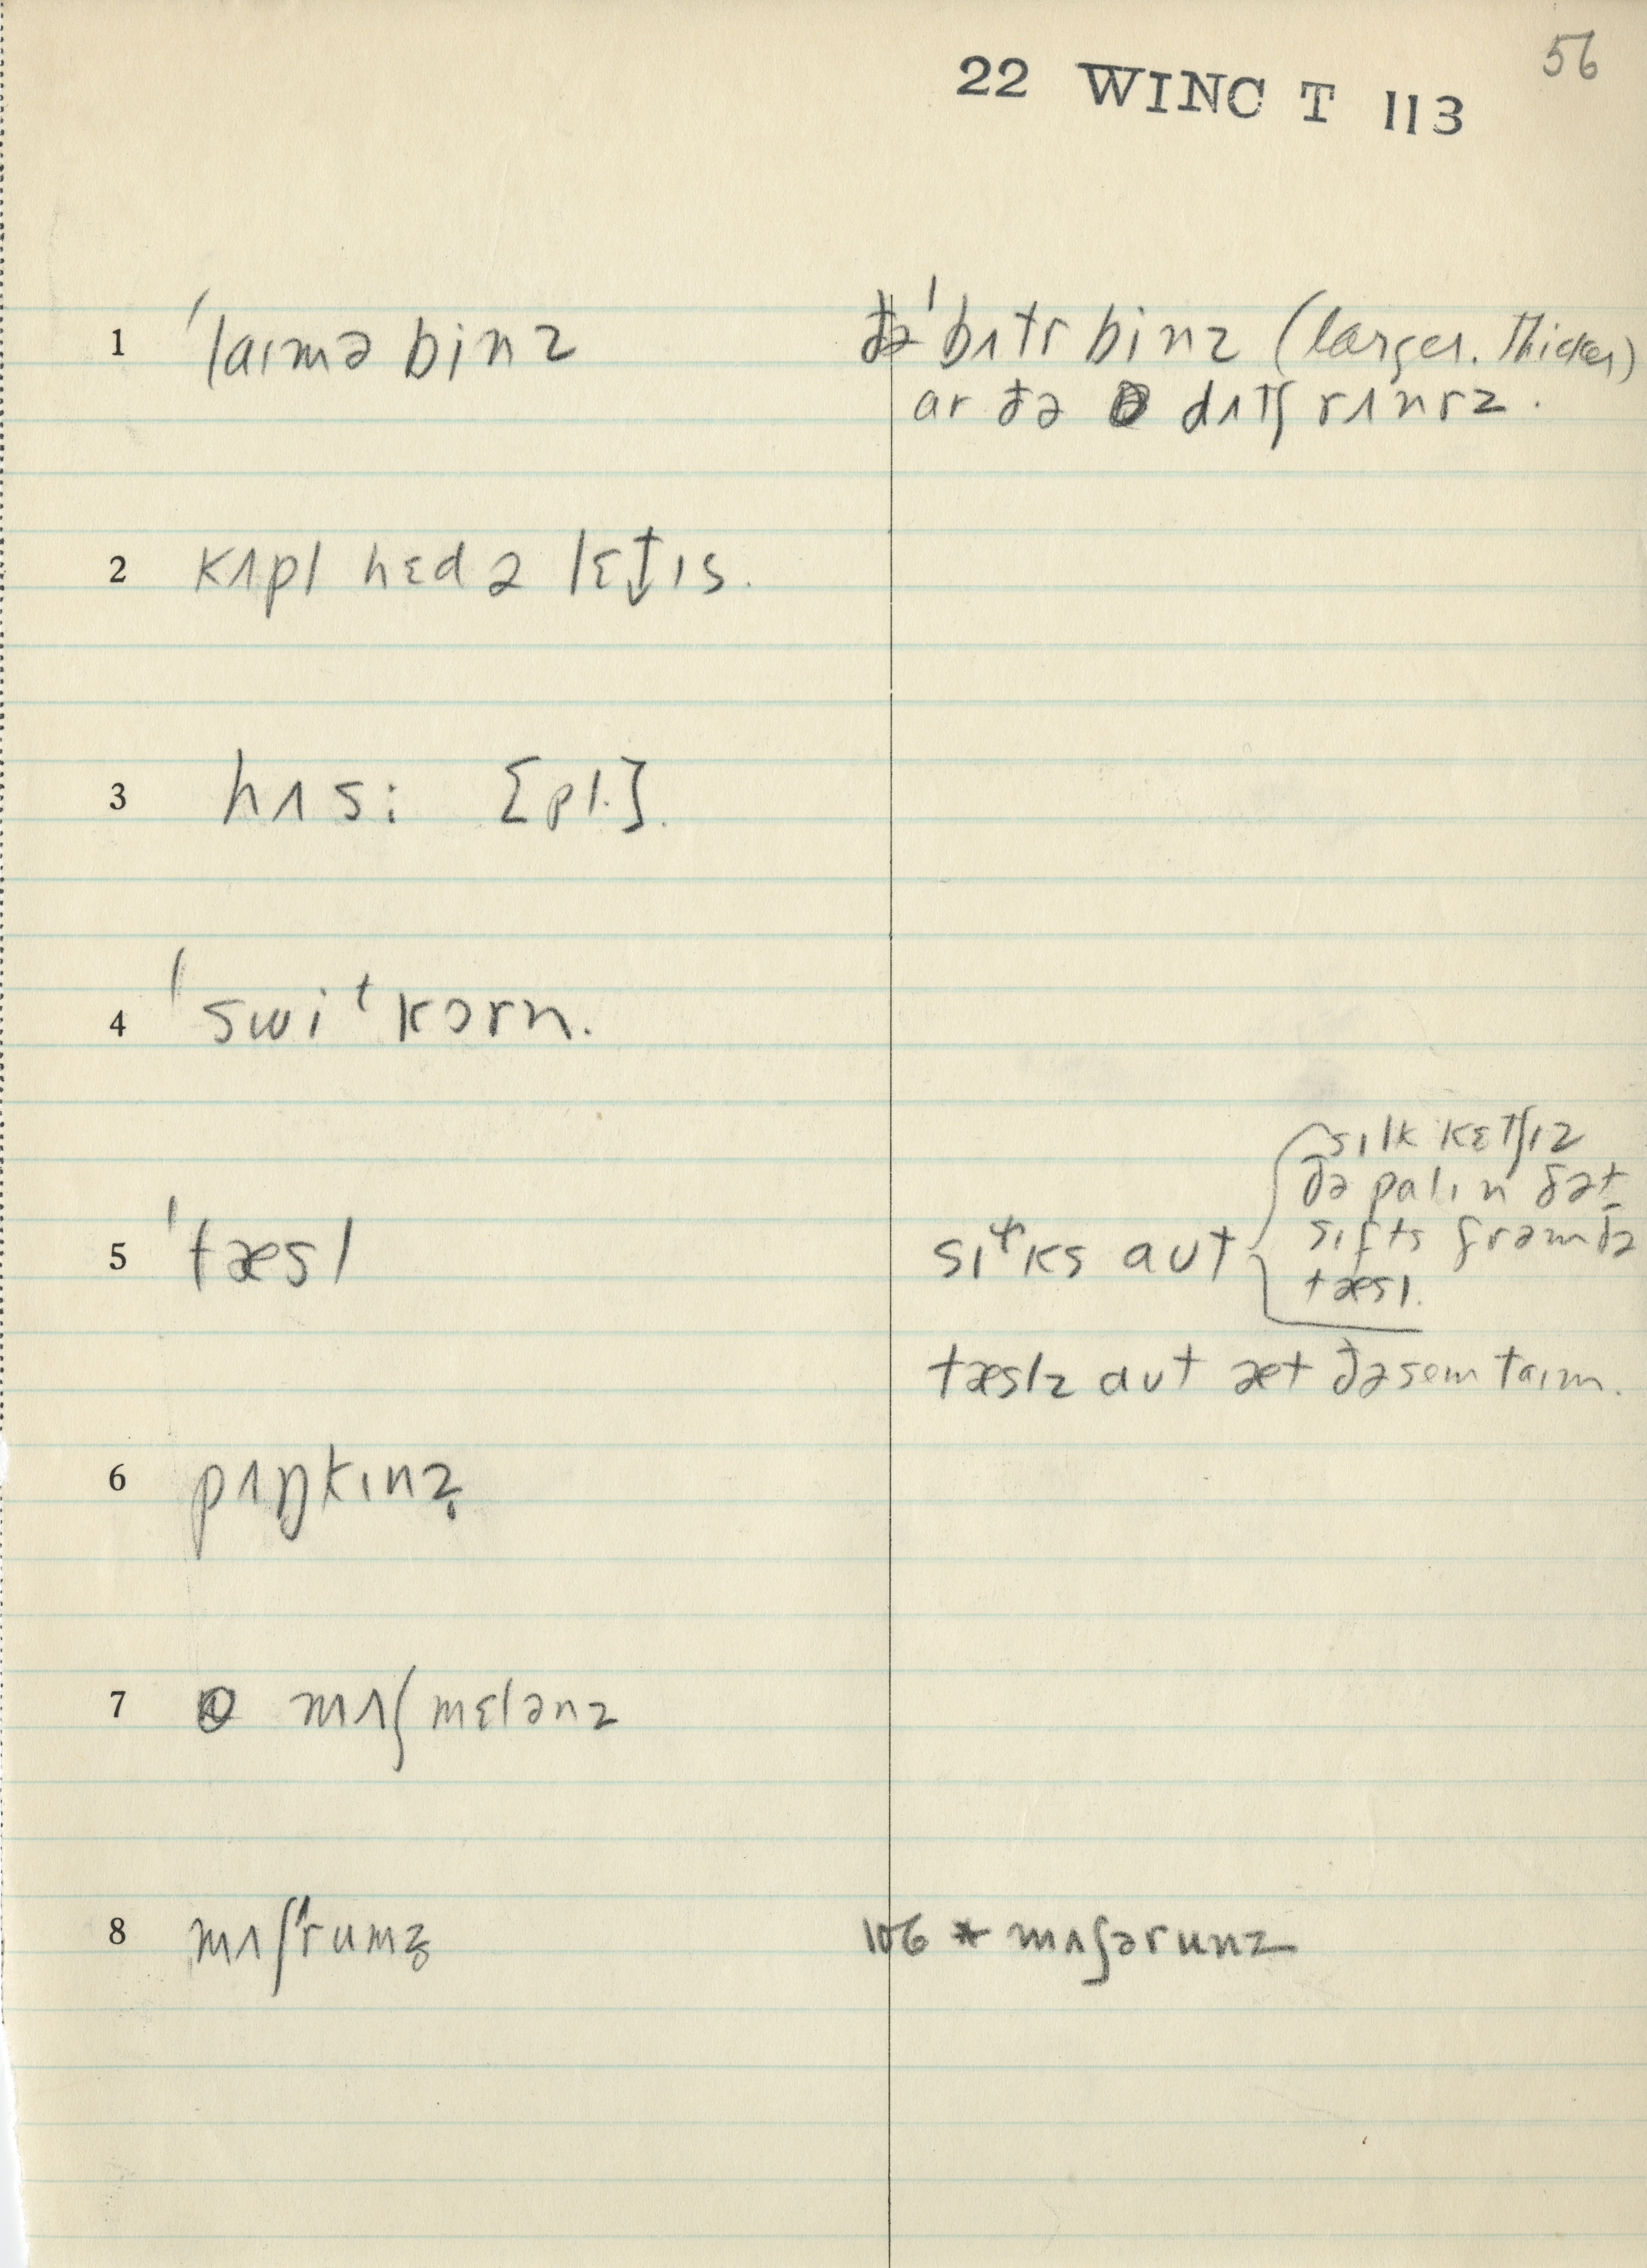 56
22 WINC T 113
1 ˈlaɪmə binz
ðə ˈbʌtr binz (larger. thicker)
ar ðə dʌtʃ rʌnrz.
2 kʌpl hɛd ə lɛt̬ɪs.
3 hʌs: [pl.].
4 ˈswiᵗkɔrn.
5 ˈtæsl
sɪlk kɛtʃɪz
ðə palɪn ðət
sɪfts frəm ðə
tæsl.
aʊt
tæslz aʊt æt ðə sem taɪm.
6 pʌŋkɪnz̥
7 mʌʃmɛlənz
8 mʌʃˈrumz̥
106 * mʌʃərunz